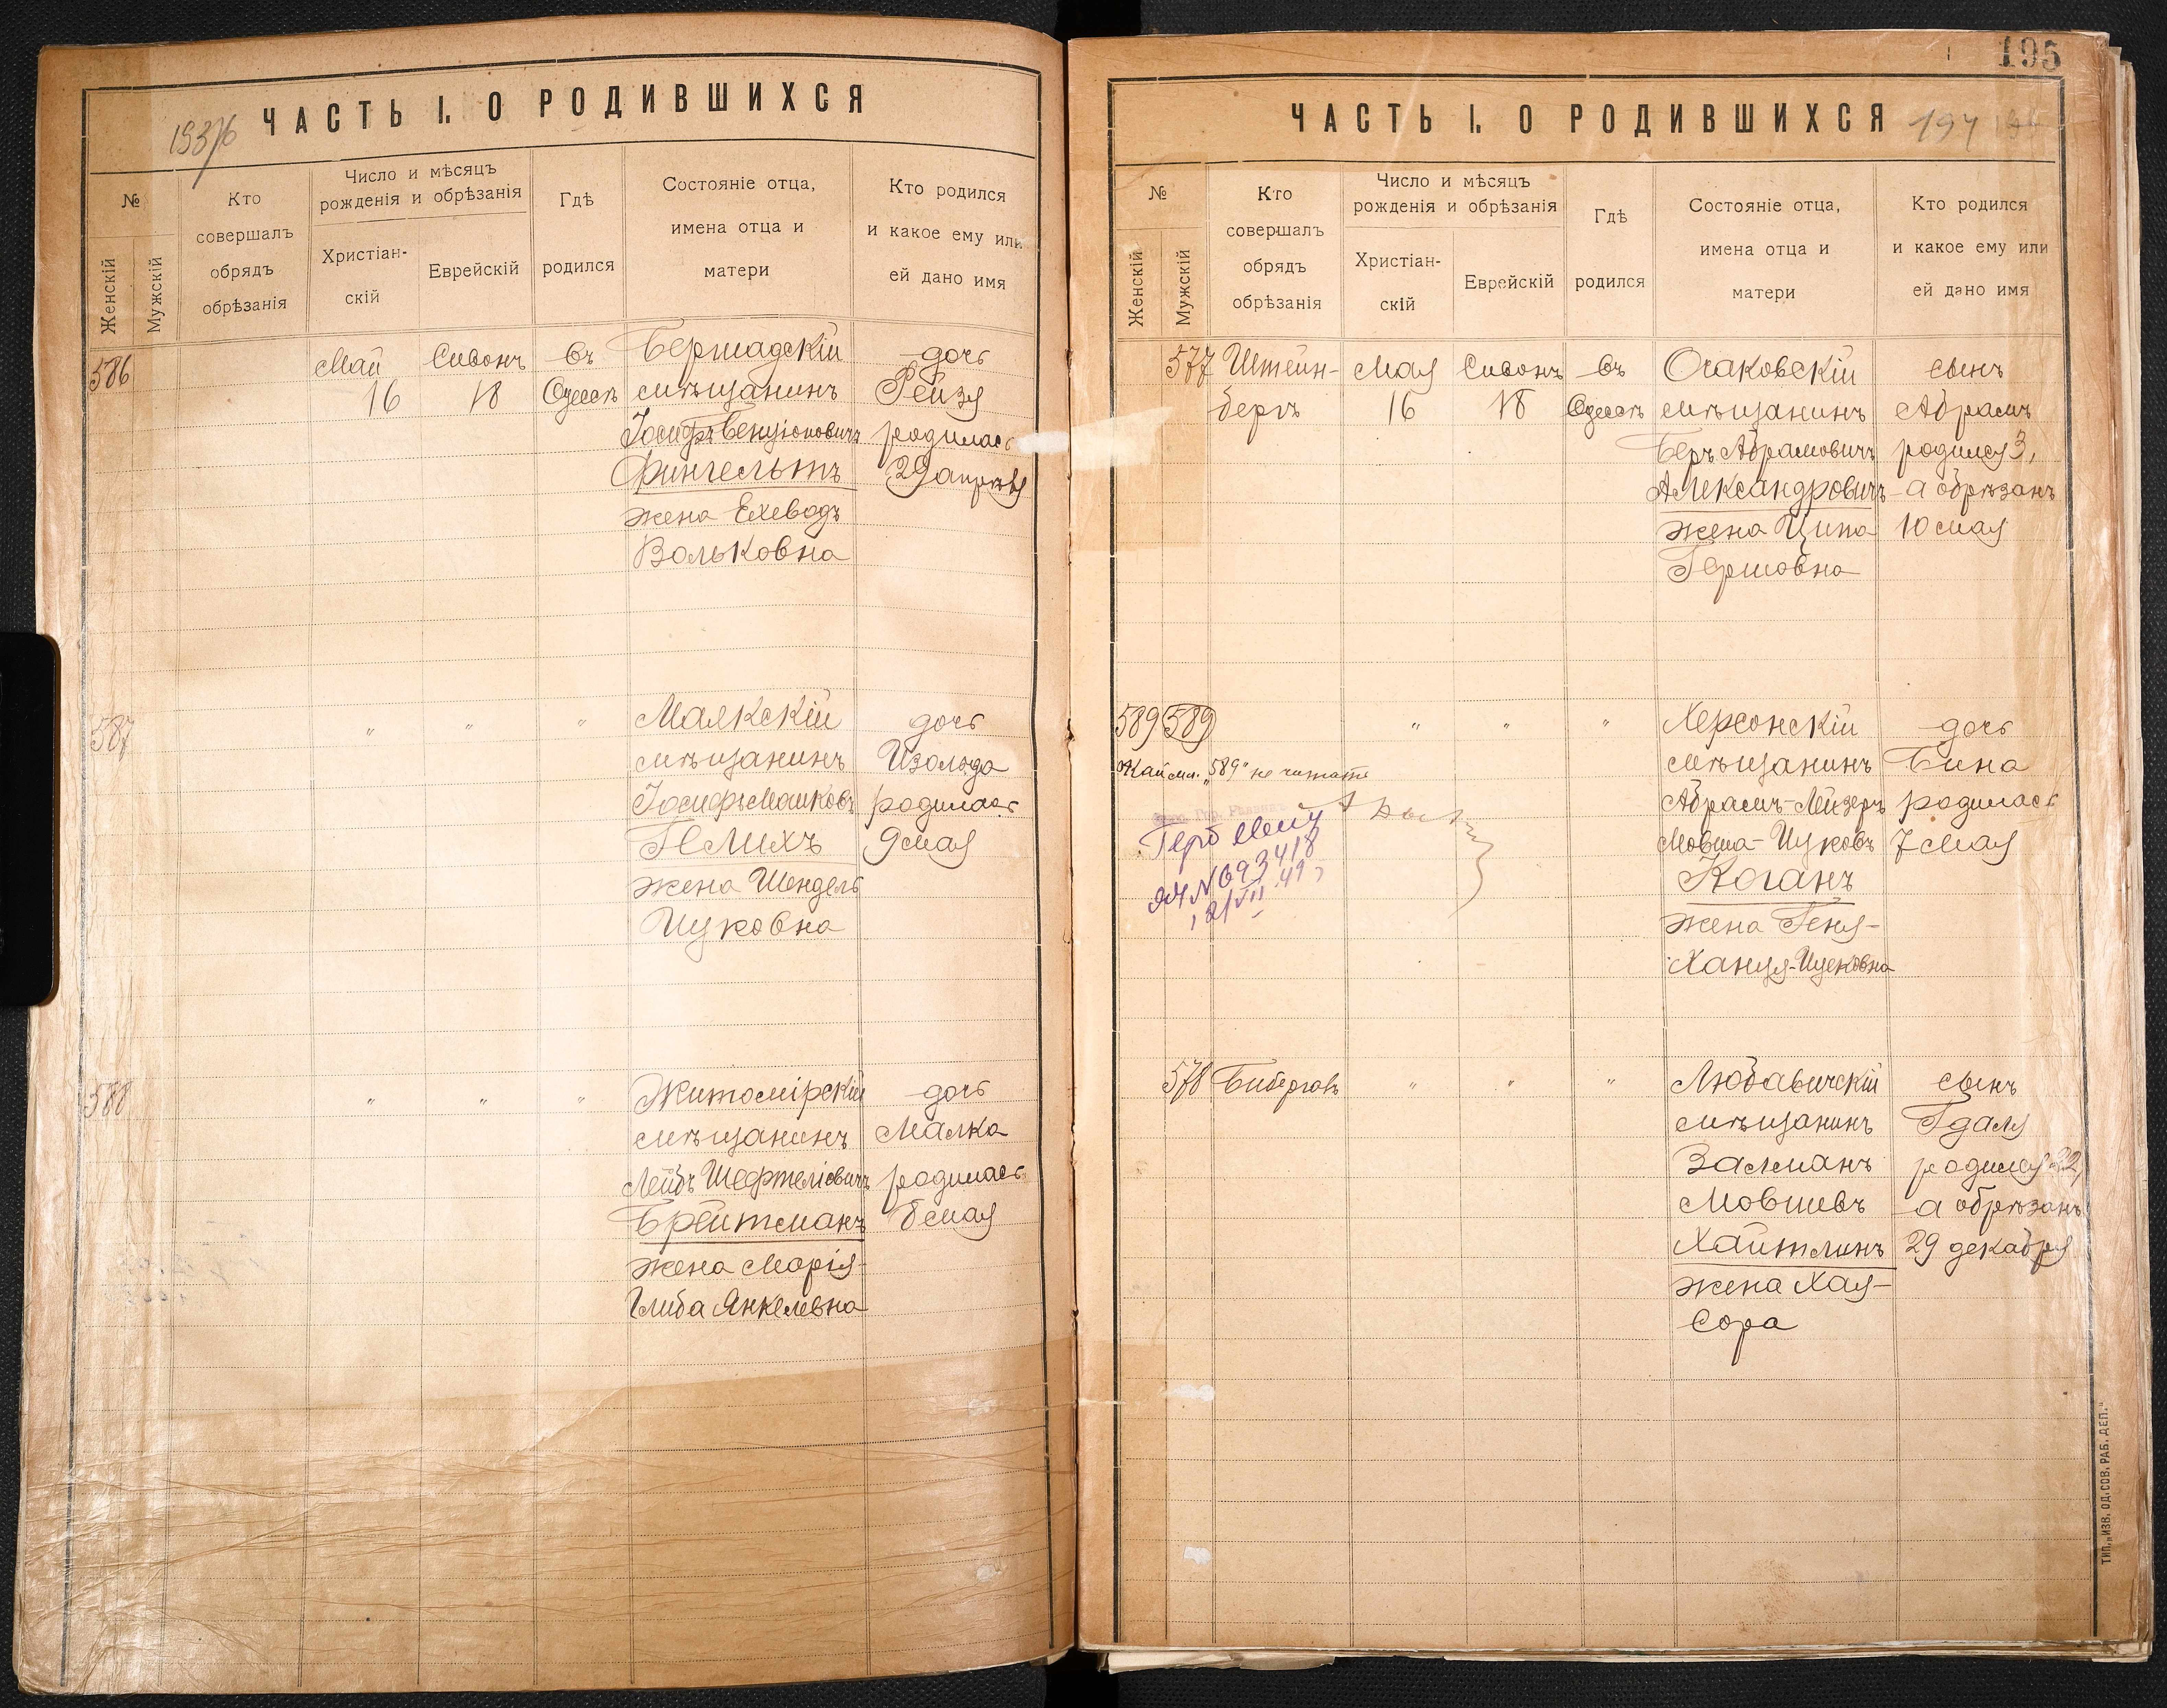 ЧАСТЬ I. О РОДИВШИХСЯ
№
Женскій
Мужскій
Кто
совершалъ
обрядъ
обрѣзанія
Число и мѣсяцъ
рожденія и обрѣзанія
Христіан-
скій
Еврейскій
Гдѣ
родился
Состояніе отца,
имена отца и
матери
Кто родился
и какое ему или
ей дано имя
586
Май
16
Сивонъ
18
Въ
Одессѣ
Бершадскій
мѣщанинъ
Іосифъ Бенціоновичъ
Фингельтъ
жена Ехевадъ
Вольковна
дочь
Рейзя
родилась
29 апрѣля
587
"
"
"
Маякскій
мѣщанинъ
Іосифъ Машковъ
Гелихъ
жена Шендель
Ицковна
дочь
Изольда
родилась
9 мая
588
"
"
"
Житомірскій
мѣщанинъ
Лейбъ Шефтеліовичъ
Брейтманъ
жена Марія-
Глиба Янкелевна
дочь
Малка
родилась
8 мая
195
ЧАСТЬ I. О РОДИВШИХСЯ
194
№
Женскій
Мужскій
Кто
совершалъ
обрядъ
обрѣзанія
Число и мѣсяцъ
рожденія и обрѣзанія
Христіан-
скій
Еврейскій
Гдѣ
родился
Состояніе отца,
имена отца и
матери
Кто родился
и какое ему или
ей дано имя
577
Штейн-
бергъ
Мая
16
Сивонъ
18
Въ
Одессѣ
Очаковскій
мѣщанинъ
Беръ Абрамовичъ
Александровичъ
жена Ципа
Гершовна
сынъ
Абрамъ
родился 3,
а обрѣзанъ
10 мая
589
589
"589" не читать
"
"
"
Херсонскій
мѣщанинъ
Абрамъ-Лейзеръ
Мовша-Ицковъ
Коганъ
жена Геня-
Ханця-Ицковна
дочь
Бина
родилась
7 мая
578
Бибергалъ
"
"
"
Любавичскій
мѣщанинъ
Залманъ
Мовшевъ
Хайтлинъ
жена Хая-
Сора
сынъ
Гдаля
родился 22,
а обрѣзанъ
29 декабря
ТИП. „ИЗВ. ОД. СОВ. РАБ. ДЕП.“